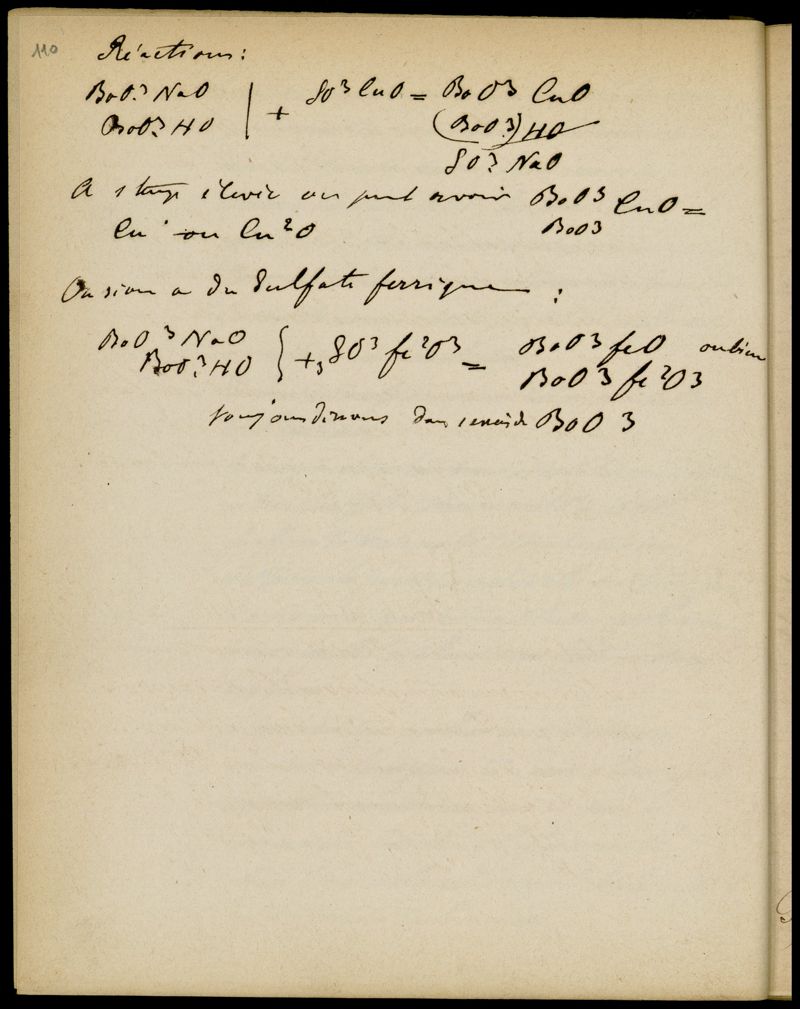 110
Réactions:
BoO3 NaO
BoO3 HO + SO3 CuO = BoO3 CuO
(BoO3) HO
SO3 NaO
A élevée on peut avoir BoO3 CuO =
BoO3
Cu ou Cu2O
Ou si on a du Sulfate ferrique :
BoO3 NaO
BoO3 HO } + 3 SO3 fe2O3 = BoO3 feO ou bien
BoO3 fe2O3
toujours dissous dans BoO3